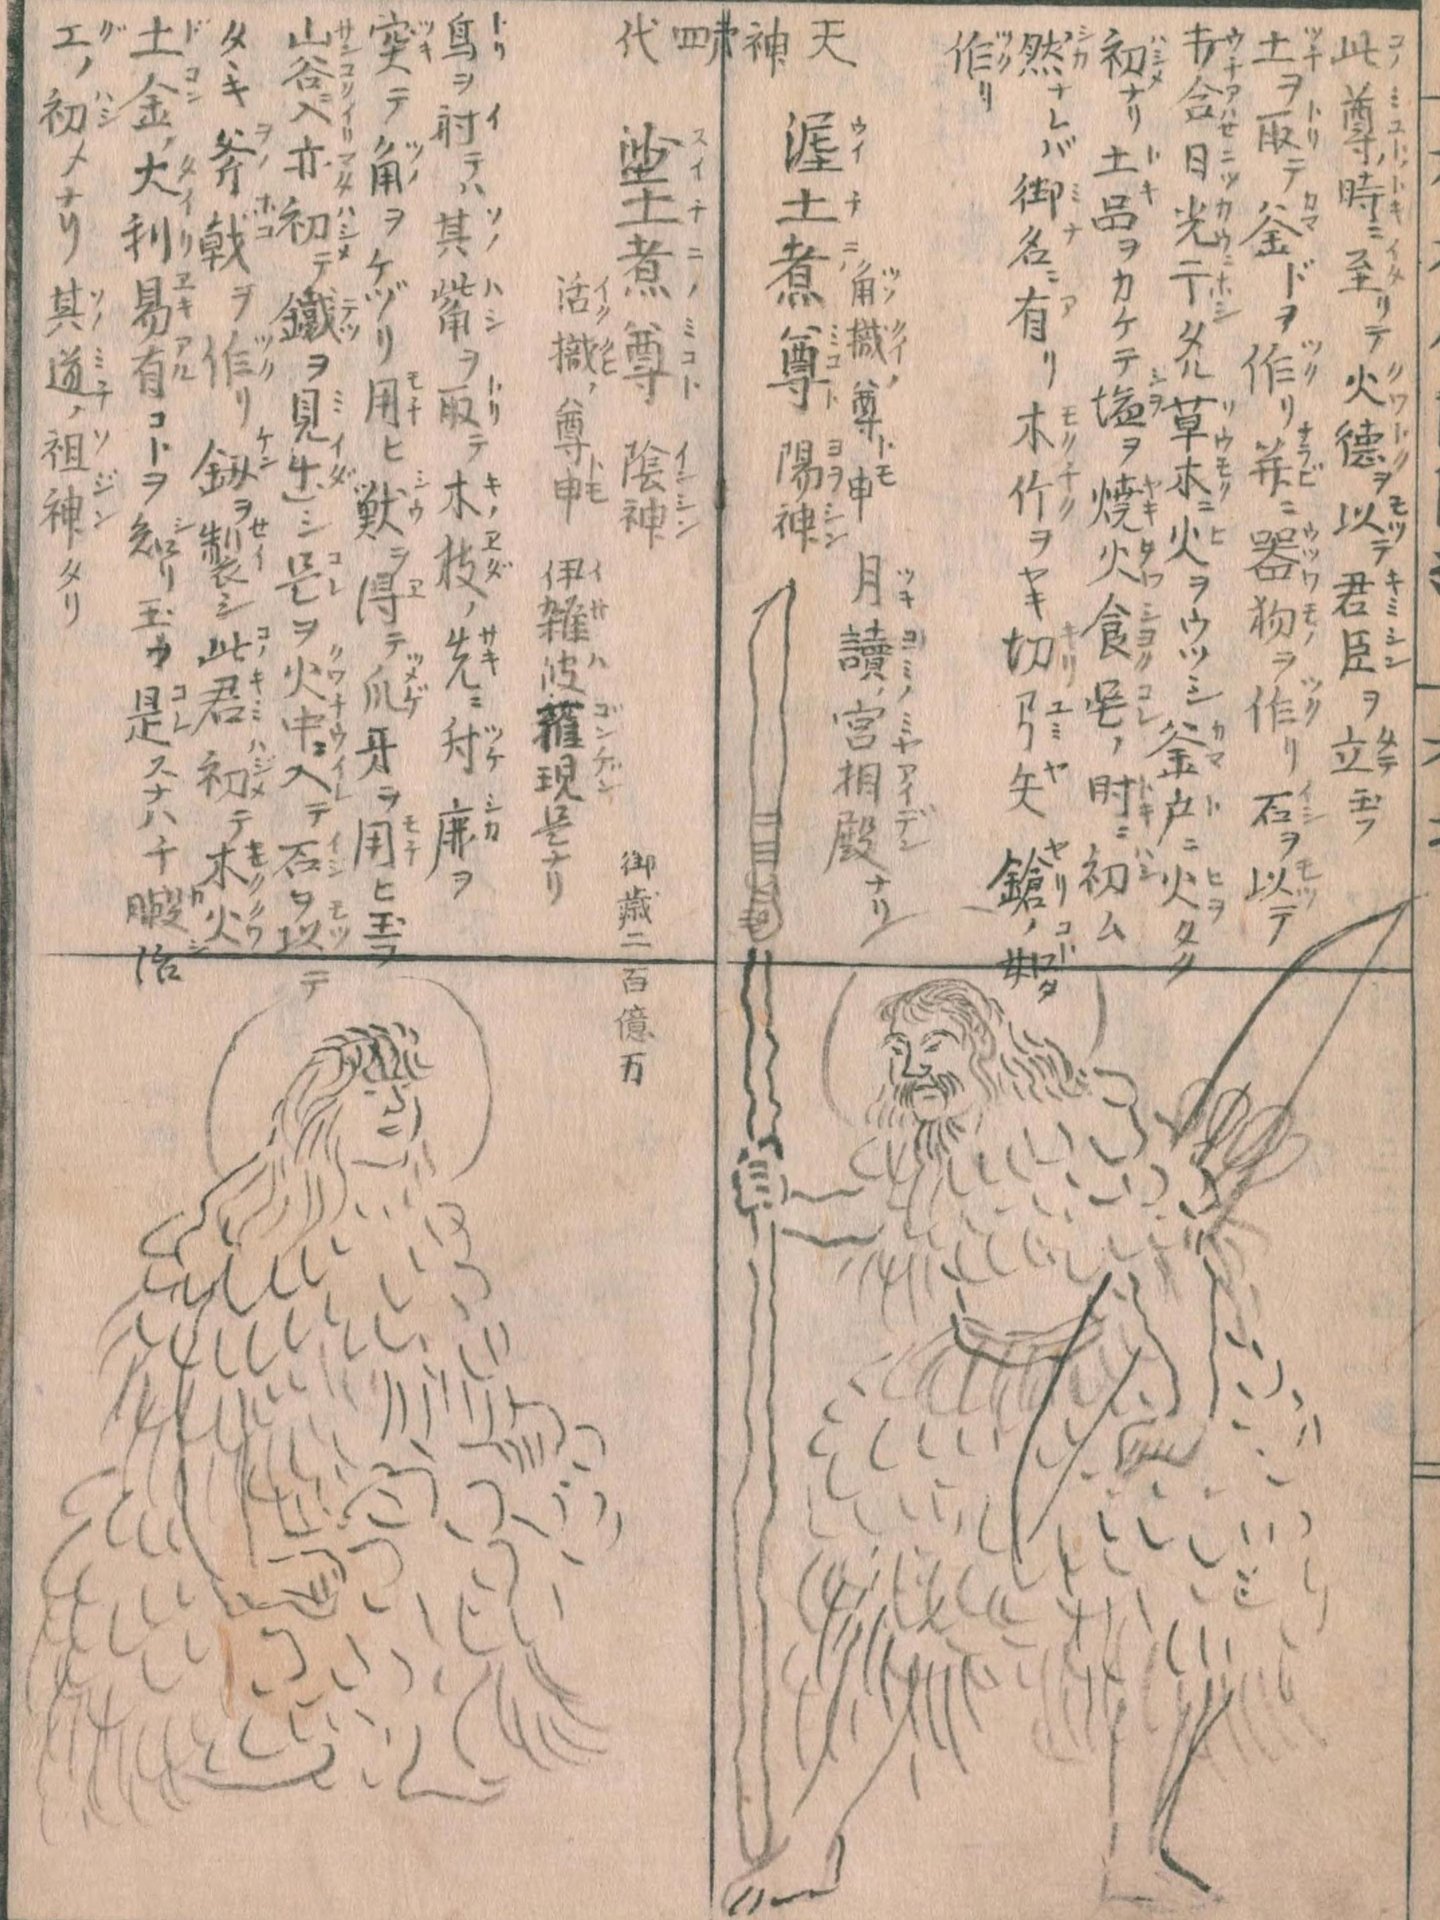 此尊ノ時ニ至リテ火徳ヲ以テ君臣ヲ立玉フ
土ヲ取テ釜ドヲ作リ并ニ器物ヲ作リ石ヲ以テ
打合日光干タル草木ニ火ヲウツシ釜戸ニ火タク
初ナリ土品ヲカケテ塩ヲ焼火食是ノ時ニ初ム
然ナレバ御名ニ有リ木竹ヲヤキ切弓矢鎗ノ
作リ
天神 四代
角樴ノ尊トモ申 月讀ノ宮相殿ナリ
泥土煮尊 陽神
沙土煮尊 陰神
御歳二百億万
活樴ノ尊トモ申 伊雑波蘿現是ナリ
鳥ヲ射テハ其嘴ヲ取テ木ノ枝ノ先ニ付鹿ヲ
突テ角ヲケヅリ用ヒ獣ヲ得テ爪牙ヲ用ヒ玉フ
山谷ニ入亦初テ鐵ヲ見出シ是ヲ火中ニ入テ石ヲ以テ
タヽキ斧戟ヲ作リ釼ヲ製シ此君初テ木火
土金ノ大利易有コトヲ知リ玉ウ是スナハチ鍜冶
エノ初メナリ其道ノ祖神タリ